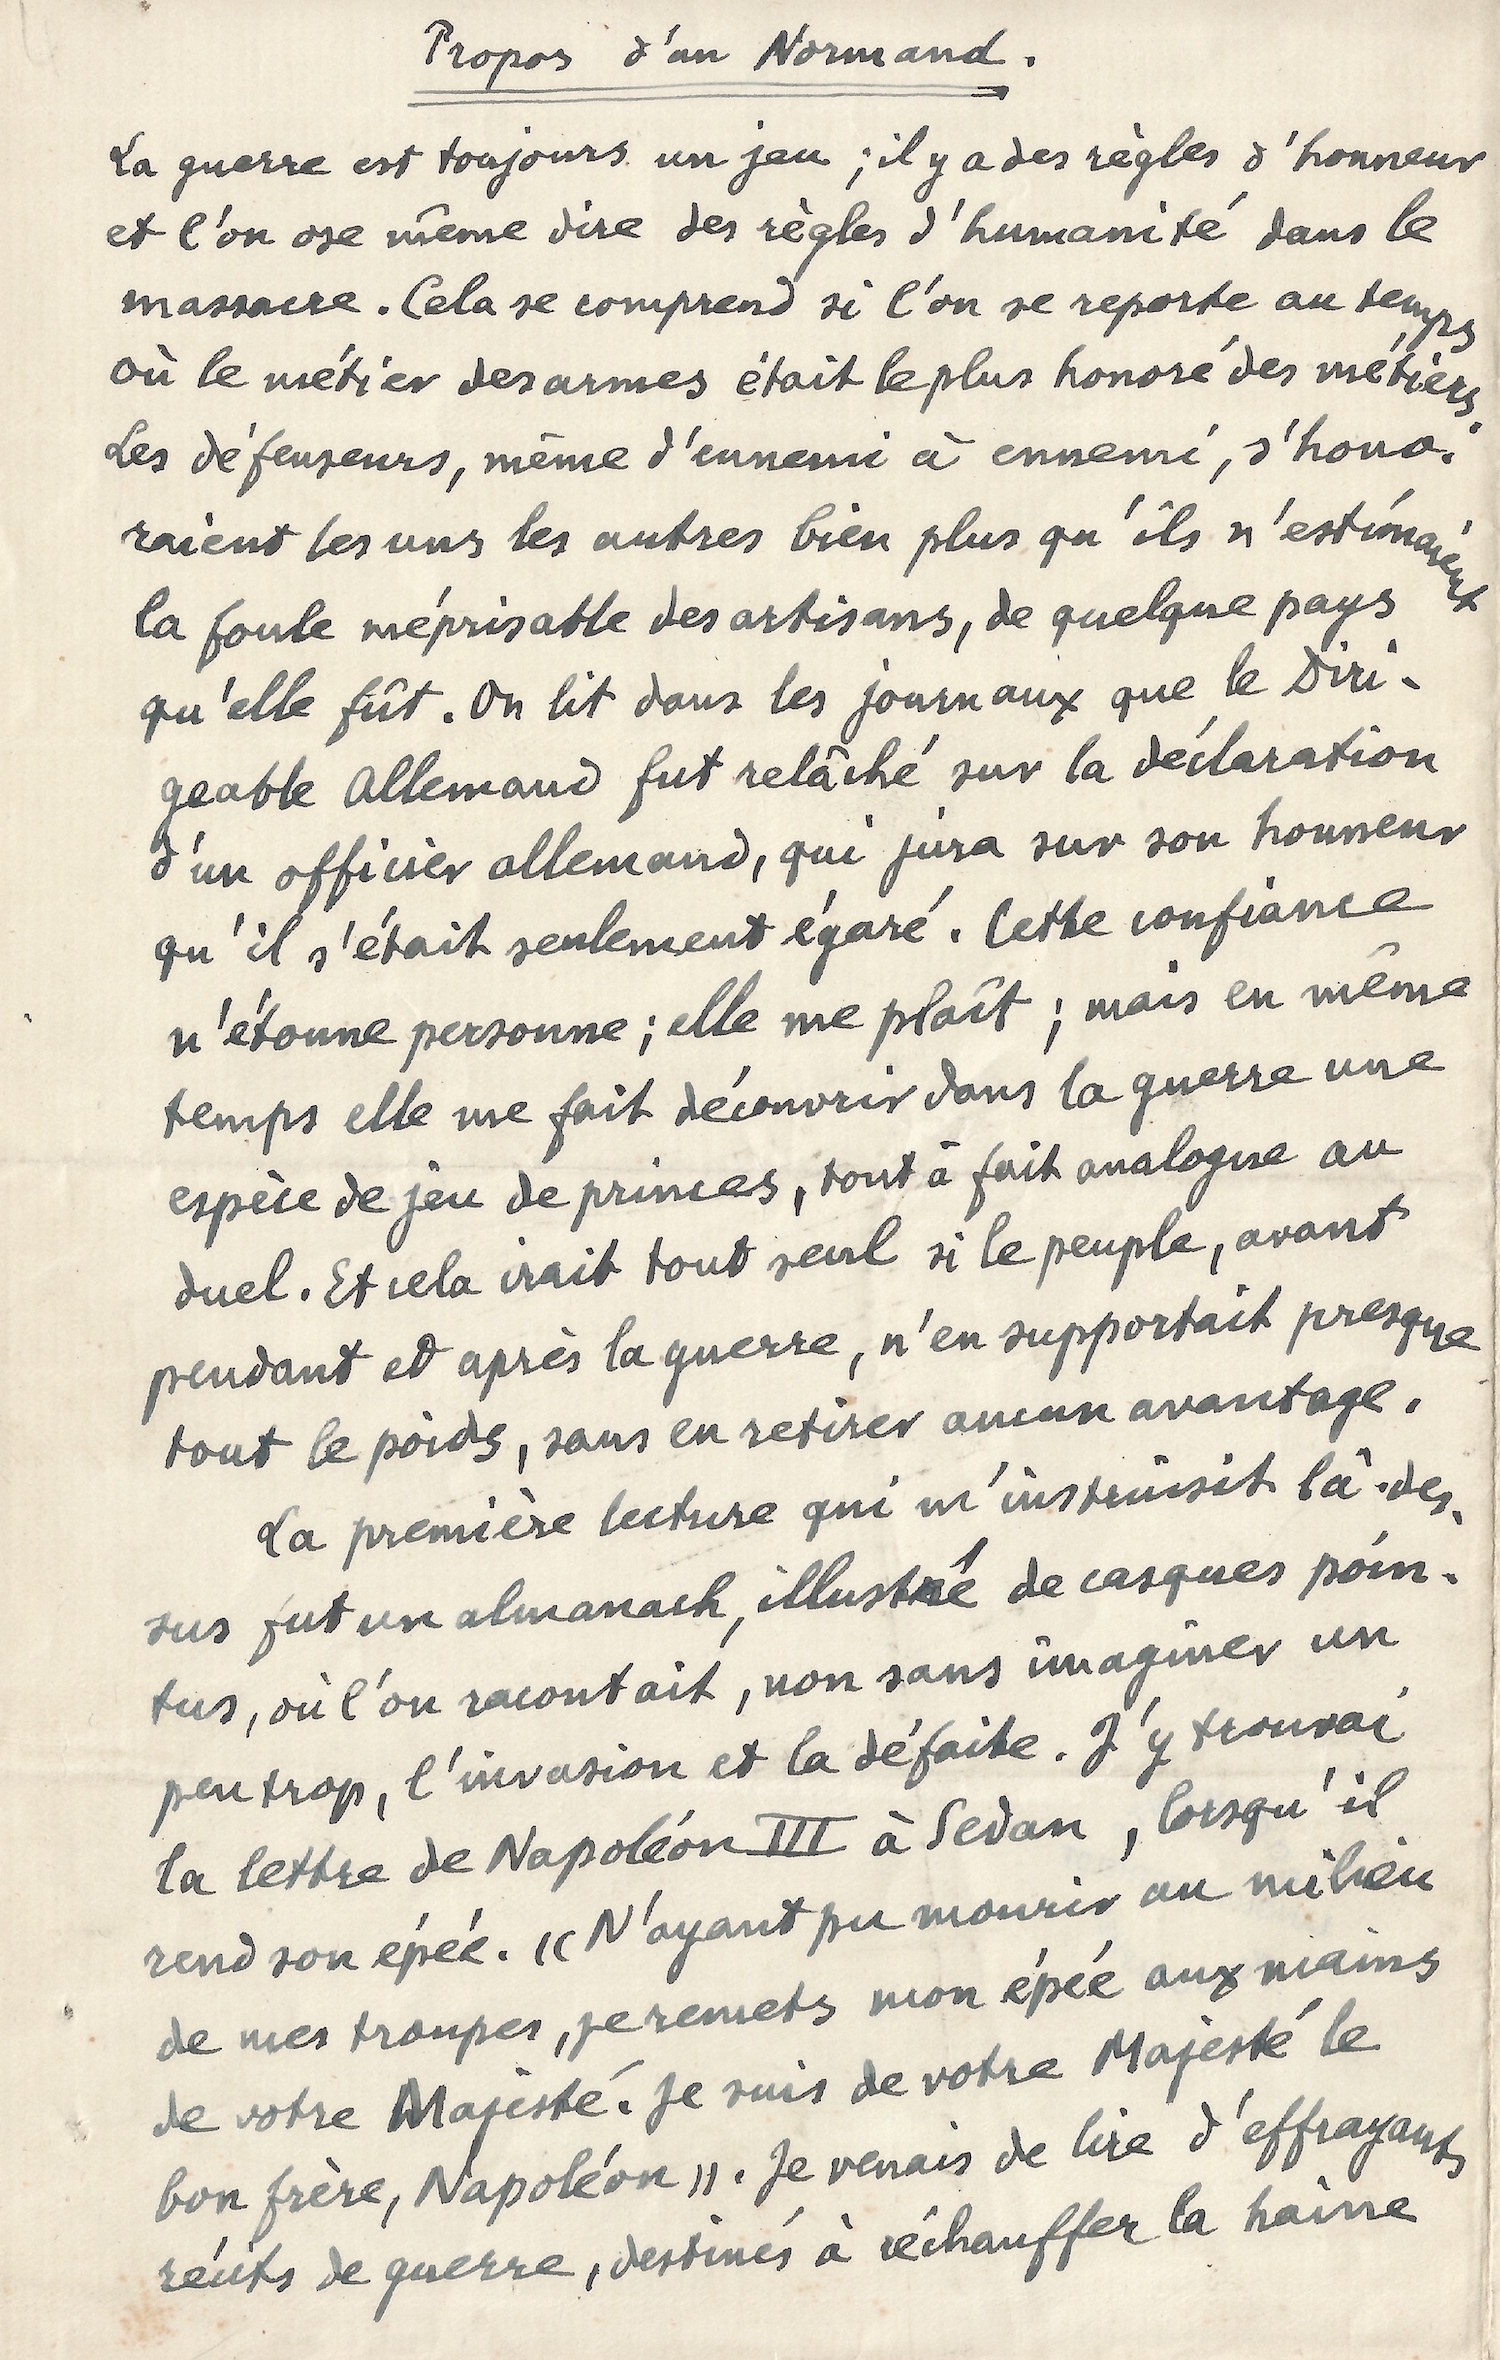 Propos d'un Normand.
La guerre est toujours un jeu ; il y a des règles d'honneur
et l'on ose même dire des règles d'humanité dans le
massacre. Cela se comprend si l'on se reporte au temps
où le métier des armes était le plus honoré des métiers.
Les défenseurs, même d'ennemi à ennemi, s'hono-
raient les uns les autres bien plus qu'ils n'estimaient
la foule méprisable des artisans, de quelque pays
qu'elle fût. On lit dans les journaux que le Diri-
geable Allemand fut relâché sur la déclaration
d'un officier allemand, qui jura sur son honneur
qu'il s'était seulement égaré. Cette confiance
n'étonne personne ; elle me plaît ; mais en même
temps elle me fait découvrir dans la guerre une
espèce de jeu de princes, tout à fait analogue au
duel. Et cela irait tout seul si le peuple, avant
pendant et après la guerre, n'en supportait presque
tout le poids, sans en retirer aucun avantage.
La première lecture qui m'instruisit là-des-
sus fut un almanach, illustré de casques poin-
tus, où l'on racontait, non sans imaginer un
peu trop, l'invasion et la défaite. J'y trouvai
la lettre de Napoléon III à Sedan, lorsqu'il
rend son épée. « N'ayant pu mourir au milieu
de mes troupes, je remets mon épée aux mains
de votre Majesté. Je suis de votre Majesté le
bon frère, Napoléon ». Je venais de lire d'effrayants
récits de guerre, destinés à réchauffer la haine